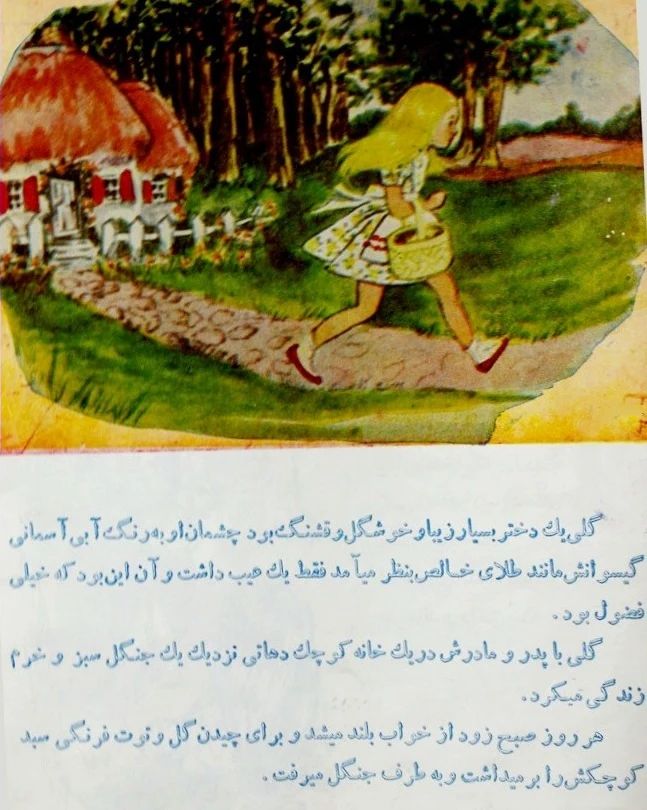 گلی یك دختر بسیار زیبا و خوشگل و قشنگ بود چشمان او به رنگ آبی آسمانی
گیسوانش مانند طلای خالص بنظر میآمد فقط یك عیب داشت و آن این بود که خیلی
فضول بود.
گلی با پدر و مادرش در یك خانه کوچك دهاتی نزدیك یك جنگل سبز و خرم
زندگی میکرد.
هر روز صبح زود از خواب بلند میشد و برای چیدن گل و توت فرنگی سبد
کوچکش را بر میداشت و به طرف جنگل میرفت.